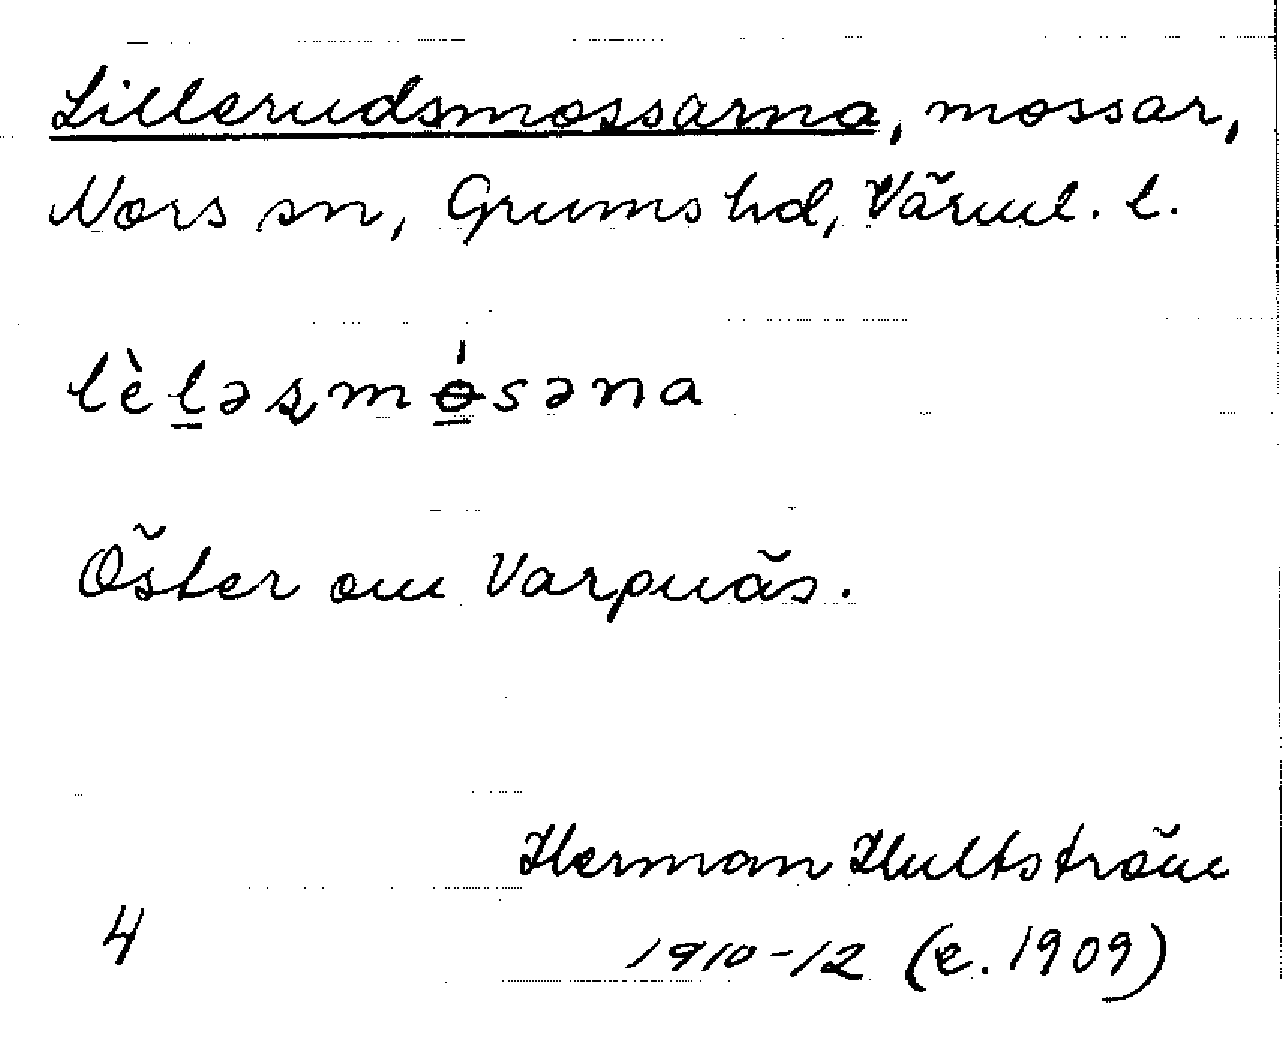 Lillerudsmossarna, mossar,
Nors sn, Grums hd, Värml. l.
lèl̲əʂmó̲səna
Öster om Varpnäs.
Herman Hultström
4 1910-12 (e. 1909)